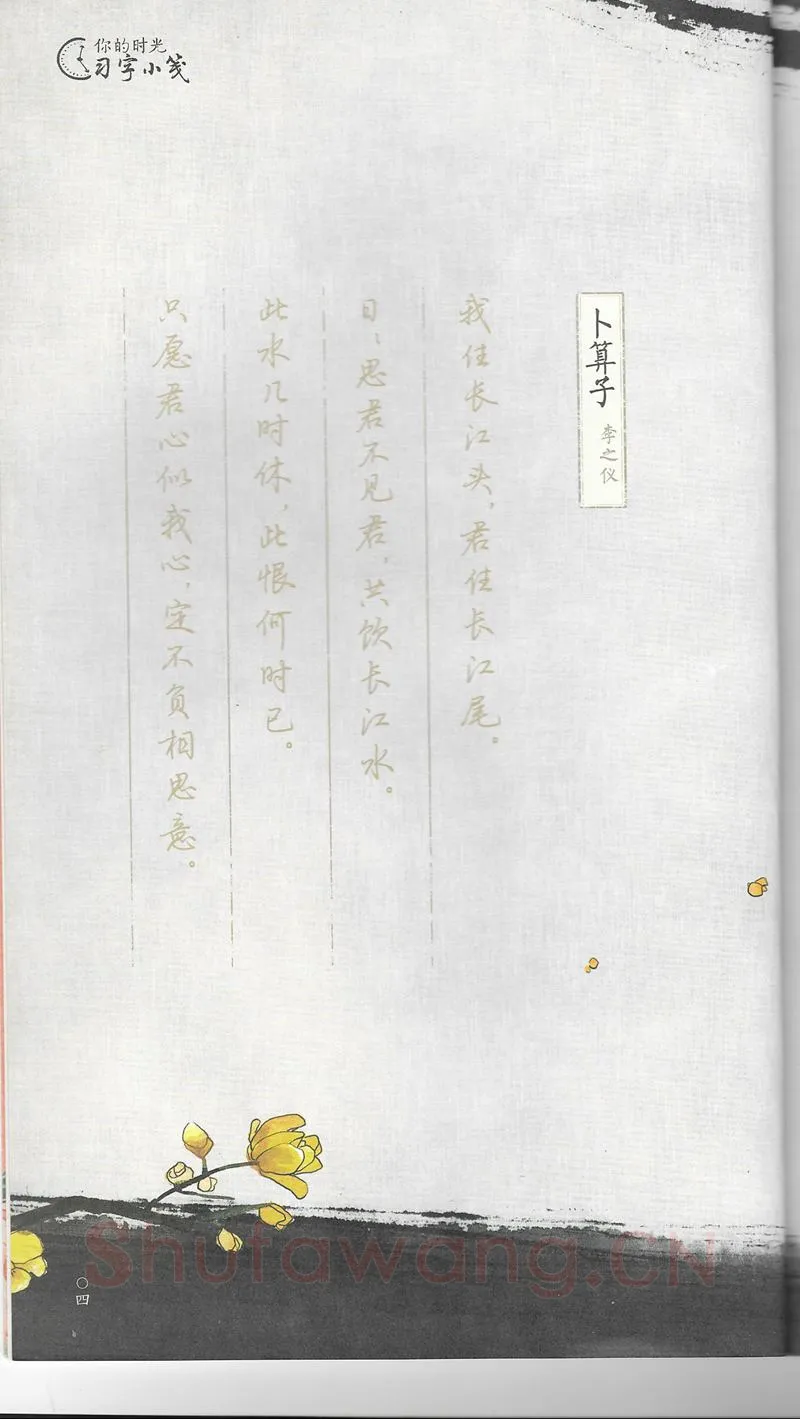 你的时光
习字小笺
卜算子
李之仪
我住长江头，君住长江尾。
日、思君不见君，共饮长江水。
此水几时休，此恨何时已。
只愿君心似我心，定不负相思意。
Shufawang.CN
〇四